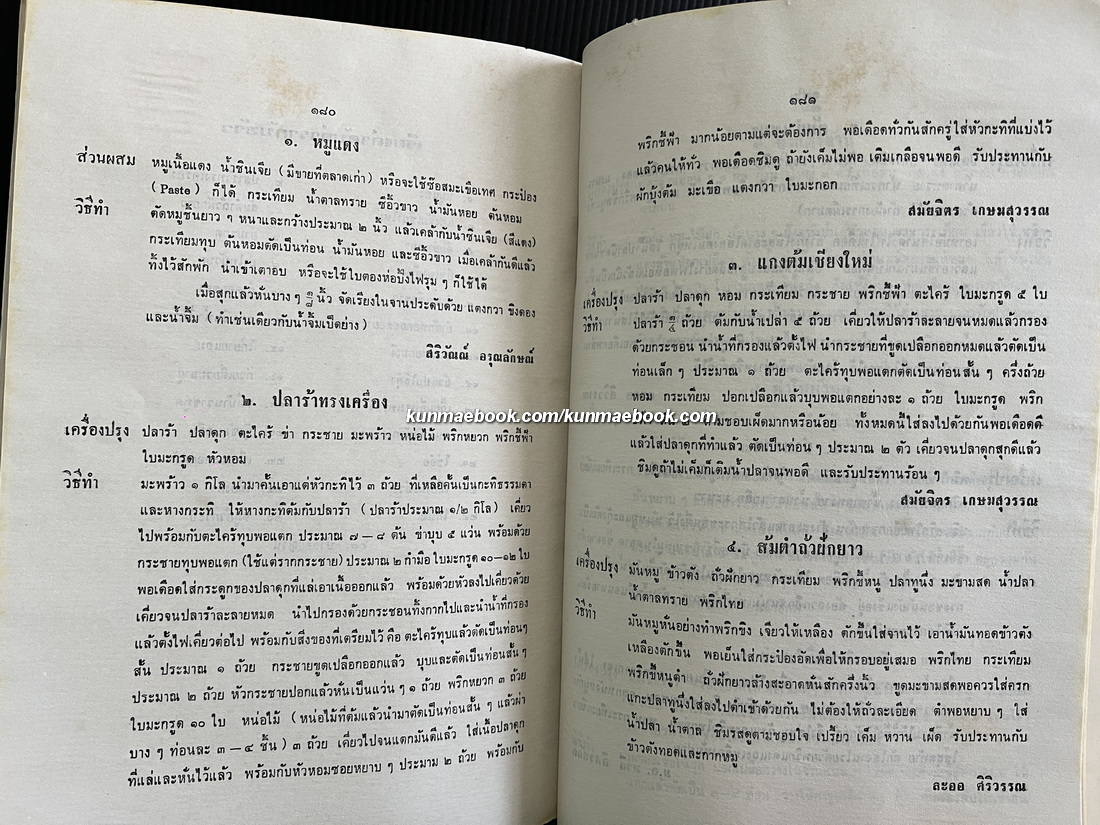 ๑๘๐
๑. หมูแดง
ส่วนผสม หมูเนื้อแดง น้ำซินเจีย (มีขายที่ตลาดเก่า) หรือจะใช้ซ๊อสมะเขือเทศ กระป๋อง
(Paste) ก็ได้ กระเทียม น้ำตาลทราย ซีอิ๊วขาว น้ำมันหอย ต้นหอม
วิธีทำ ตัดหมูชิ้นยาว ๆ หนาและกว้างประมาณ ๒ นิ้ว แล้วเคล้ากับน้ำซินเจีย (สีแดง)
กระเทียมทุบ ต้นหอมตัดเป็นท่อน น้ำมันหอย และซีอิ๊วขาว เมื่อเคล้ากันดีแล้ว
ทิ้งไว้สักพัก นำเข้าเตาอบ หรือจะใช้ใบตองห่อปิ้งไฟรุม ๆ ก็ใช้ได้
เมื่อสุกแล้วหั่นบาง ๆ ๑/๘ นิ้ว จัดเรียงในจานประดับด้วย แตงกวา ขิงดอง
และน้ำจิ้ม (ทำเช่นเดียวกับน้ำจิ้มเป็ดย่าง)
สิริวัณณ์ อรุณลักษณ์
๒. ปลาร้าทรงเครื่อง
เครื่องปรุง ปลาร้า ปลาดุก ตะไคร้ ข่า กระชาย มะพร้าว หน่อไม้ พริกหยวก พริกชี้ฟ้า
ใบมะกรูด หัวหอม
วิธีทำ มะพร้าว ๑ กิโล นำมาคั้นเอาแต่หัวกะทิไว้ ๓ ถ้วย ที่เหลือคั้นเป็นกะทิธรรมดา
และหางกะทิ ให้หางกะทิต้มกับปลาร้า (ปลาร้าประมาณ ๑/๒ กิโล) เคี่ยว
ไปพร้อมกับตะไคร้ทุบพอแตก ประมาณ ๗ — ๘ ต้น ข่าบุบ ๕ แว่น พร้อมด้วย
กระชายทุบพอแตก (ใช้แต่รากกระชาย) ประมาณ ๒ กำมือ ใบมะกรูด ๑๐—๑๒ ใบ
พอเดือดใส่กระดูกของปลาดุกที่แล่เอาเนื้อออกแล้ว พร้อมด้วยหัวลงไปเคี่ยวด้วย
เคี่ยวจนปลาร้าละลายหมด นำไปกรองด้วยกระชอนทิ้งกากไปและนำน้ำที่กรอง
แล้วตั้งไฟเคี่ยวต่อไป พร้อมกับสิ่งของที่เตรียมไว้ คือ ตะไคร้ทุบแล้วตัดเป็นท่อนๆ
สั้น ประมาณ ๑ ถ้วย กระชายขูดเปลือกออกแล้ว บุบและตัดเป็นท่อนสั้นๆ
ประมาณ ๒ ถ้วย หัวกระชายปอกแล้วหั่นเป็นแว่น ๆ ๑ ถ้วย พริกหยวก ๓ ถ้วย
ใบมะกรูด ๑๐ ใบ หน่อไม้ (หน่อไม้ที่ต้มแล้วนำมาตัดเป็นท่อนสั้น ๆ แล้วผ่า
บาง ๆ ท่อนละ ๓ — ๔ ชิ้น) ๓ ถ้วย เคี่ยวไปจนแตกมันดีแล้ว ใส่เนื้อปลาดุก
ที่แล่และหั่นไว้แล้ว พร้อมกับหัวหอมซอยหยาบ ๆ ประมาม ๒ ถ้วย พร้อมกับ
๑๘๑
พริกชี้ฟ้า มากน้อยตามแต่จะต้องการ พอเดือดทั่วกันสักครู่ใส่หัวกะทิที่แบ่งไว้
แล้วคนให้ทั่ว พอเดือดชิมดู ถ้ายังเค็มไม่พอ เติมเกลือจนพอดี รับประทานกับ
ผักบุ้งต้ม มะเขือ แตงกวา ใบมะกอก
สมัยจิตร เกษมสุวรรณ
๓. แกงต้มเชียงใหม่
เครื่องปรุง ปลาร้า ปลาดุก หอม กระเทียม กระชาย พริกชี้ฟ้า ตะไคร้ ใบมะกรูด ๕ ใบ
วิธีทำ ปลาร้า ๑/๔ ถ้วย ต้มกับน้ำเปล่า ๕ ถ้วย เคี่ยวให้ปลาร้าละลายจนหมดแล้วกรอง
ด้วยกระชอน นำน้ำที่กรองแล้วตั้งไฟ นำกระชายที่ขูดเปลือกออกหมดแล้วตัดเป็น
ท่อนเล็ก ๆ ประมาณ ๑ ถ้วย ตะไคร้ทุบพอแตกตัดเป็นท่อนสั้น ๆ ครึ่งถ้วย
หอม กระเทียม ปอกเปลือกแล้วบุบพอแตกอย่างละ ๑ ถ้วย ใบมะกรูด พริก
kunmaebook.com/kunmaebook.com
ตามชอบเผ็ดมากหรือน้อย ทั้งหมดนี้ใส่ลงไปด้วยกันพอเดือดดี
แล้วใส่ปลาดุกที่ทำแล้ว ตัดเป็นท่อนๆ ประมาณ ๒ ตัว เคี่ยวจนปลาดุกสุกดีแล้ว
ชิมดูถ้าไม่เค็มก็เติมน้ำปลาจนพอดี และรับประทานร้อน ๆ
สมัยจิตร เกษมสุวรรณ
๔. ส้มตำถั่วฝักยาว
เครื่องปรุง มันหมู ข้าวตัง ถั่วฝักยาว กระเทียม พริกขี้หนู ปลาทูนึ่ง มะขามสด น้ำปลา
น้ำตาลทราย พริกไทย
วิธีทำ มันหมูหั่นอย่างทำพริกขิง เจียวให้เหลือง ตักขึ้นใส่จานไว้ เอาน้ำมันทอดข้าวตัง
เหลืองตักขึ้น พอเย็นใส่กระป๋องอัดเพื่อให้กรอบอยู่เสมอ พริกไทย กระเทียม
พริกขี้หนูตำ ถั่วฝักยาวล้างสะอาดหั่นสักครึ่งนิ้ว ขูดมะขามสดพอควรใส่ครก
แกะปลาทูนึ่งใส่ลงไปตำเข้าด้วยกัน ไม่ต้องให้ถั่วละเอียด ตำพอหยาบ ๆ ใส่
น้ำปลา น้ำตาล ชิมรสดูตามชอบใจ เปรี้ยว เค็ม หวาน เผ็ด รับประทานกับ
ข้าวตังทอดและกากหมู
ละออ ศิริวรรณ